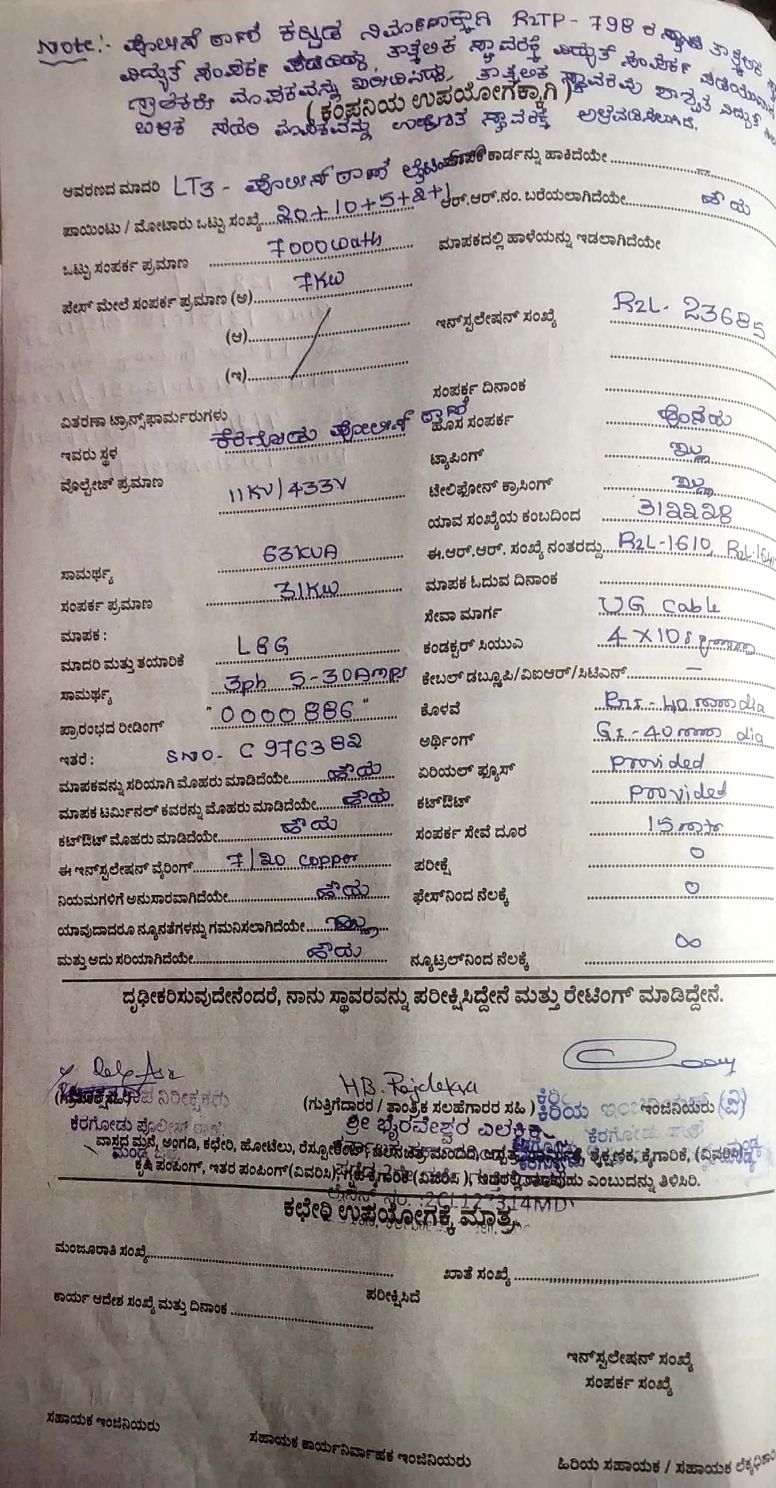 Note:- ಪೋಲೀಸ್ ಠಾಣೆ ಕಟ್ಟಡ ನಿರ್ಮಾಣಕ್ಕಾಗಿ R2TP-798 ರ ತಾತ್ಕಲಿಕ
ವಿದ್ಯುತ್ ಸಂಪರ್ಕ ಪಡೆದಿದ್ದು, ತಾತ್ಕಲಿಕ ಸ್ಥಾವರಕ್ಕೆ ವಿದ್ಯುತ್ ಸಂಪರ್ಕ
ಗ್ರಾಹಕರೇ ಮಾಪಕವನ್ನು ತಾತ್ಕಲಿಕ ಸ್ಥಾವರವು ಶಾಶ್ವತ ವಿದ್ಯುತ್
( ಕಂಪನಿಯ ಉಪಯೋಗಕ್ಕಾಗಿ )
ಬಳಿಕ ಸದರಿ ಮಾಪಕವನ್ನು ಉದ್ದೇಶಿತ ಸ್ಥಾವರಕ್ಕೆ ಅಳವಡಿಸಲಾಗಿದೆ.
ಆವರಣದ ಮಾದರಿ LT3 - ಪೋಲೀಸ್ ಠಾಣೆ ಲೈಟಿಂಗ್ ಕಾರ್ಡನ್ನು ಹಾಕಿದೆಯೇ
ಪಾಯಿಂಟು / ಮೋಟಾರು ಒಟ್ಟು ಸಂಖ್ಯೆ 20+10+5+2+1 ಆರ್.ಆರ್.ನಂ. ಬರೆಯಲಾಗಿದೆಯೇ ಹೌದು
ಒಟ್ಟು ಸಂಪರ್ಕ ಪ್ರಮಾಣ 7000 wath ಮಾಪಕದಲ್ಲಿ ಹಾಳೆಯನ್ನು ಇಡಲಾಗಿದೆಯೇ
ಪೇಸ್ ಮೇಲೆ ಸಂಪರ್ಕ ಪ್ರಮಾಣ (ಅ) 7KW
(ಆ) ಇನ್‌ಸ್ಪಲೇಷನ್ ಸಂಖ್ಯೆ R2L- 23685
(ಇ)
ಸಂಪರ್ಕ ದಿನಾಂಕ
ವಿತರಣಾ ಟ್ರಾನ್ಸ್‌ಫಾರ್ಮರುಗಳು
ಇವರು ಸ್ಥಳ ಕೆರೆಗೋಡು ಪೋಲೀಸ್ ಠಾಣೆ ಹೊಸ ಸಂಪರ್ಕ ಹೊಸದು
ವೊಲ್ಟೇಜ್ ಪ್ರಮಾಣ 11KV/433V ಟ್ಯಾಪಿಂಗ್ ಇಲ್ಲ
ಟೇಲಿಫೋನ್ ಕ್ರಾಸಿಂಗ್ ಇಲ್ಲ
ಯಾವ ಸಂಖ್ಯೆಯ ಕಂಬದಿಂದ 312228
ಸಾಮರ್ಥ್ಯ 63KVA ಈ.ಆರ್.ಆರ್. ಸಂಖ್ಯೆ ನಂತರದ್ದು R2L-1610,
ಸಂಪರ್ಕ ಪ್ರಮಾಣ 31KW ಮಾಪಕ ಓದುವ ದಿನಾಂಕ
ಮಾಪಕ : ಸೇವಾ ಮಾರ್ಗ UG Cable
ಮಾದರಿ ಮತ್ತು ತಯಾರಿಕೆ L&G ಕಂಡಕ್ಟರ್ ಸಿಯುವಿ 4 X 10
ಸಾಮರ್ಥ್ಯ 3ph 5-30Amps ಕೇಬಲ್ ಡಬ್ಲೂಪಿ/ವಿಐಆರ್/ಸಿಟಿಎನ್ -
ಪ್ರಾರಂಭದ ರೀಡಿಂಗ್ "0000886" ಕೊಳವೆ 40 mm dia
ಇತರೆ : SNO- C976382 ಅರ್ಥಿಂಗ್ GI-40mm dia
ಮಾಪಕವನ್ನು ಸರಿಯಾಗಿ ಮೊಹರು ಮಾಡಿದೆಯೇ ಹೌದು ಏರಿಯಲ್ ಫ್ಯೂಸ್ Provided
ಮಾಪಕ ಟರ್ಮಿನಲ್ ಕವರನ್ನು ಮೊಹರು ಮಾಡಿದೆಯೇ ಹೌದು ಕಟ್‌ಔಟ್ Provided
ಕಟ್‌ಔಟ್ ಮೊಹರು ಮಾಡಿದೆಯೇ ಹೌದು ಸಂಪರ್ಕ ಸೇವೆ ದೂರ 15 mtr
ಈ ಇನ್‌ಸ್ಪಲೇಷನ್ ವೈರಿಂಗ್ 7/20 Copper ಪರೀಕ್ಷೆ 0
ನಿಯಮಗಳಿಗೆ ಅನುಸಾರವಾಗಿದೆಯೇ ಹೌದು ಫೇಸ್‌ನಿಂದ ನೆಲಕ್ಕೆ 0
ಯಾವುದಾದರೂ ನ್ಯೂನತೆಗಳನ್ನು ಗಮನಿಸಲಾಗಿದೆಯೇ ಇಲ್ಲ
ಮತ್ತು ಅದು ಸರಿಯಾಗಿದೆಯೇ ಹೌದು ನ್ಯೂಟ್ರಲ್‌ನಿಂದ ನೆಲಕ್ಕೆ ∞
ದೃಢೀಕರಿಸುವುದೇನೆಂದರೆ, ನಾನು ಸ್ಥಾವರವನ್ನು ಪರೀಕ್ಷಿಸಿದ್ದೇನೆ ಮತ್ತು ರೇಟಿಂಗ್ ಮಾಡಿದ್ದೇನೆ.
(ಗುತ್ತಿಗೆದಾರರ / ತಾಂತ್ರಿಕ ಸಲಹೆಗಾರರ ಸಹಿ ) ಕಿರಿಯ ಇಂಜಿನಿಯರು (ವಿ)
ಕೆರಗೋಡು ಪೊಲೀಸ್ ಠಾಣೆ ಶ್ರೀ ಭೈರವೇಶ್ವರ ಎಲೆಕ್ಟ್ರಿಕಲ್ ಕೆರಗೋಡು
ವಾಸ್ತವ್ಯದ ಮನೆ, ಅಂಗಡಿ, ಕಛೇರಿ, ಹೋಟೆಲು, ಶೈಕ್ಷಣಿಕ, ಕೈಗಾರಿಕೆ, (ವಿವರಿಸಿ)
ಕೃಷಿ ಪಂಪಿಂಗ್, ಇತರ ಪಂಪಿಂಗ್(ವಿವರಿಸಿ), ಗೃಹ ಕೈಗಾರಿಕೆ (ವಿವರಿಸಿ ), ಎಂಬುದನ್ನು ತಿಳಿಸಿರಿ.
ಕಛೇರಿ ಉಪಯೋಗಕ್ಕೆ ಮಾತ್ರ
ಮಂಜೂರಾತಿ ಸಂಖ್ಯೆ ಖಾತೆ ಸಂಖ್ಯೆ
ಕಾರ್ಯ ಆದೇಶ ಸಂಖ್ಯೆ ಮತ್ತು ದಿನಾಂಕ ಪರೀಕ್ಷಿಸಿದೆ
ಇನ್‌ಸ್ಪಲೇಷನ್ ಸಂಖ್ಯೆ
ಸಂಪರ್ಕ ಸಂಖ್ಯೆ
ಸಹಾಯಕ ಇಂಜಿನಿಯರು ಸಹಾಯಕ ಕಾರ್ಯನಿರ್ವಾಹಕ ಇಂಜಿನಿಯರು ಹಿರಿಯ ಸಹಾಯಕ / ಸಹಾಯಕ